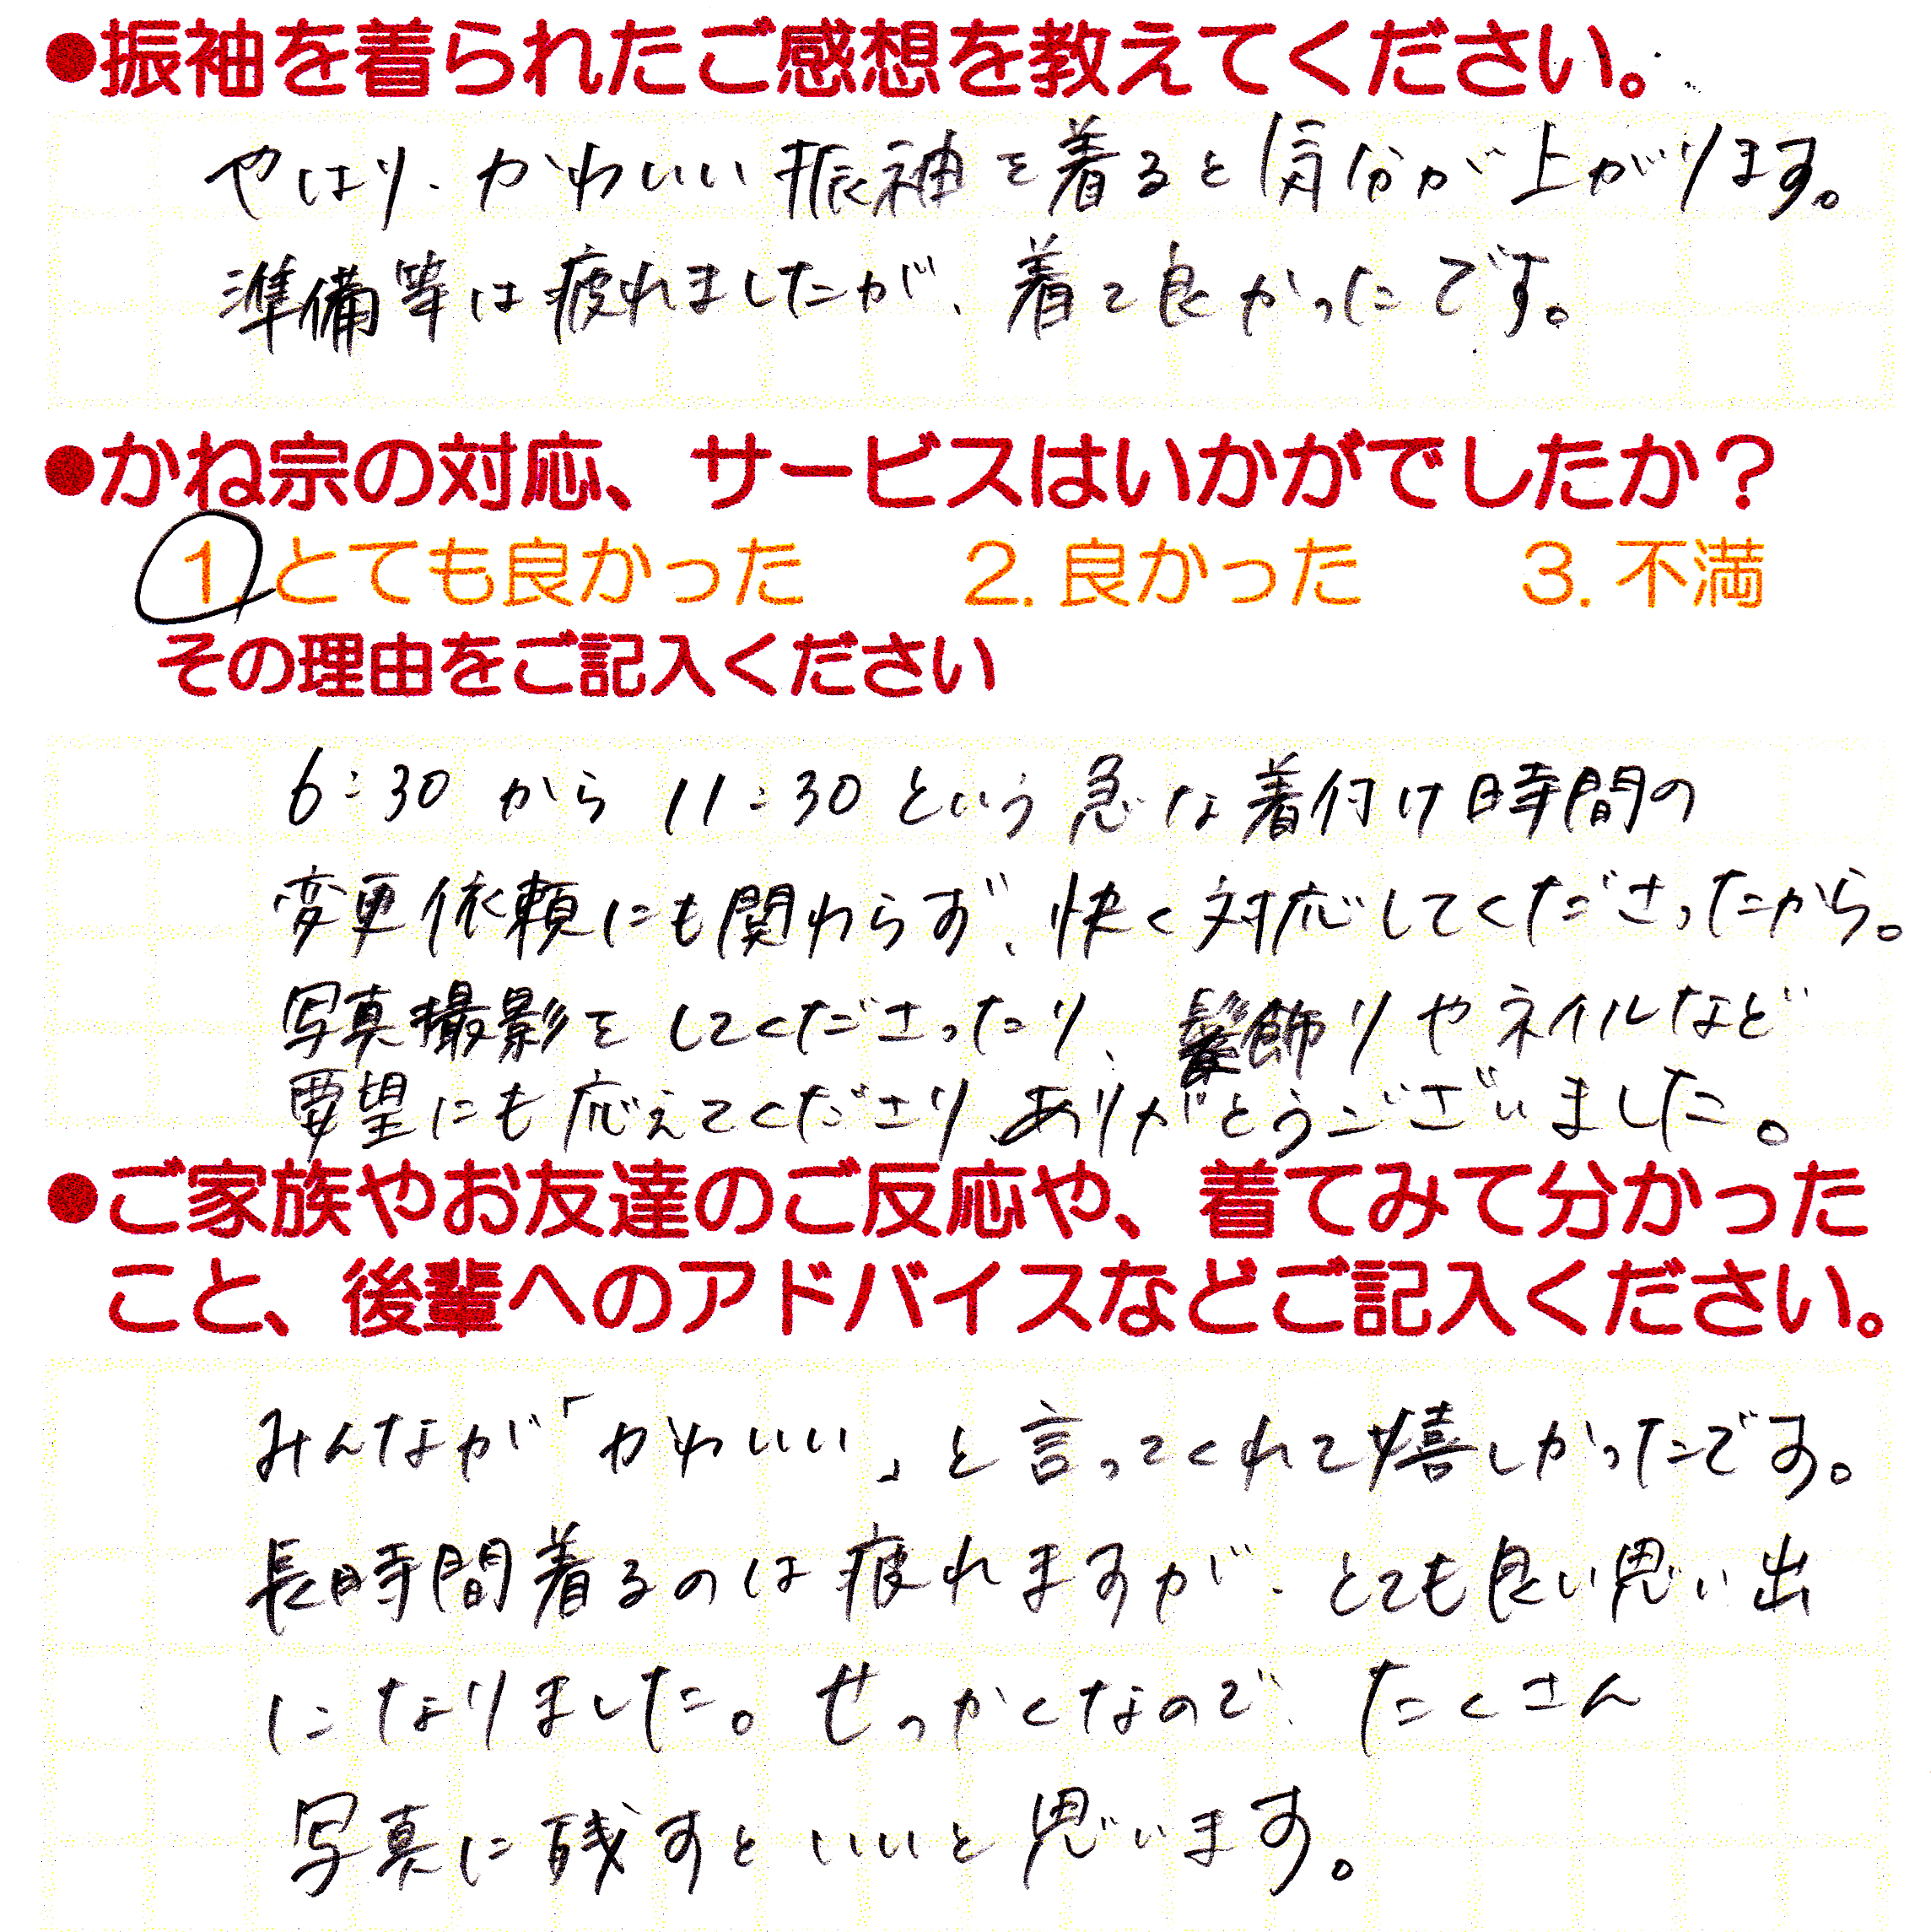 ●振袖を着られたご感想を教えてください。
やはり、かわいい振袖を着ると気分が上がります。
準備等は疲れましたが、着て良かったです。
●かね宗の対応、サービスはいかがでしたか？
1.とても良かった 2.良かった 3.不満
その理由をご記入ください
6:30から11:30という急な着付け時間の
変更依頼にも関わらず、快く対応してくださったから。
写真撮影をしてくださったり、髪飾りやネイルなど
要望にも応えてくださり、ありがとうございました。
●ご家族やお友達のご反応や、着てみて分かった
こと、後輩へのアドバイスなどご記入ください。
みんなが「かわいい」と言ってくれて嬉しかったです。
長時間着るのは疲れますが、とても良い思い出
になりました。せっかくなので、たくさん
写真に残すといいと思います。